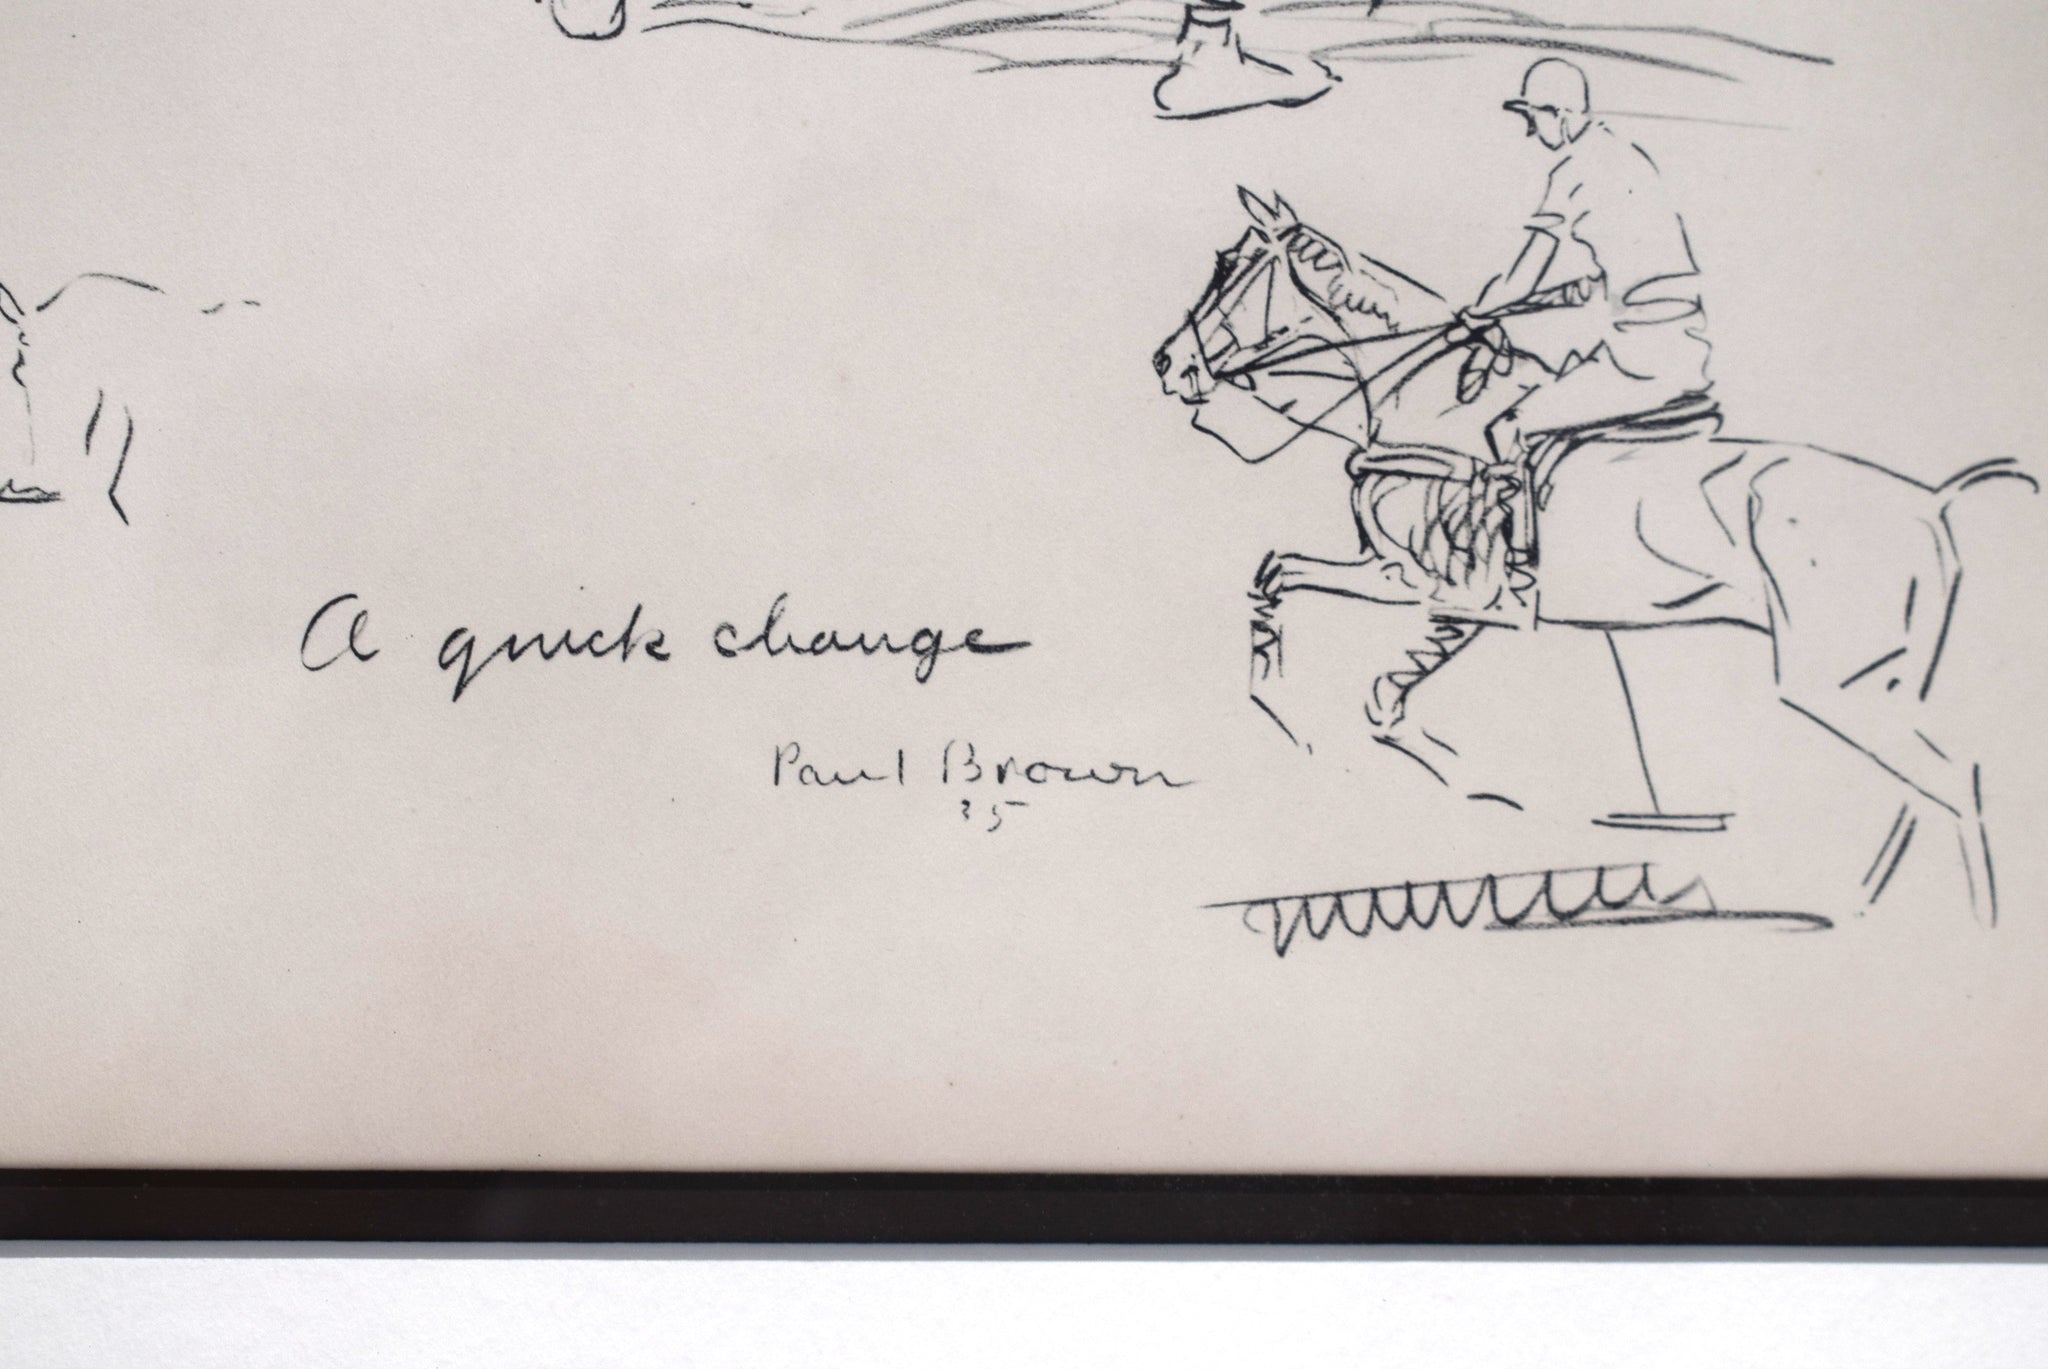 A quick change
Paul Brown
35